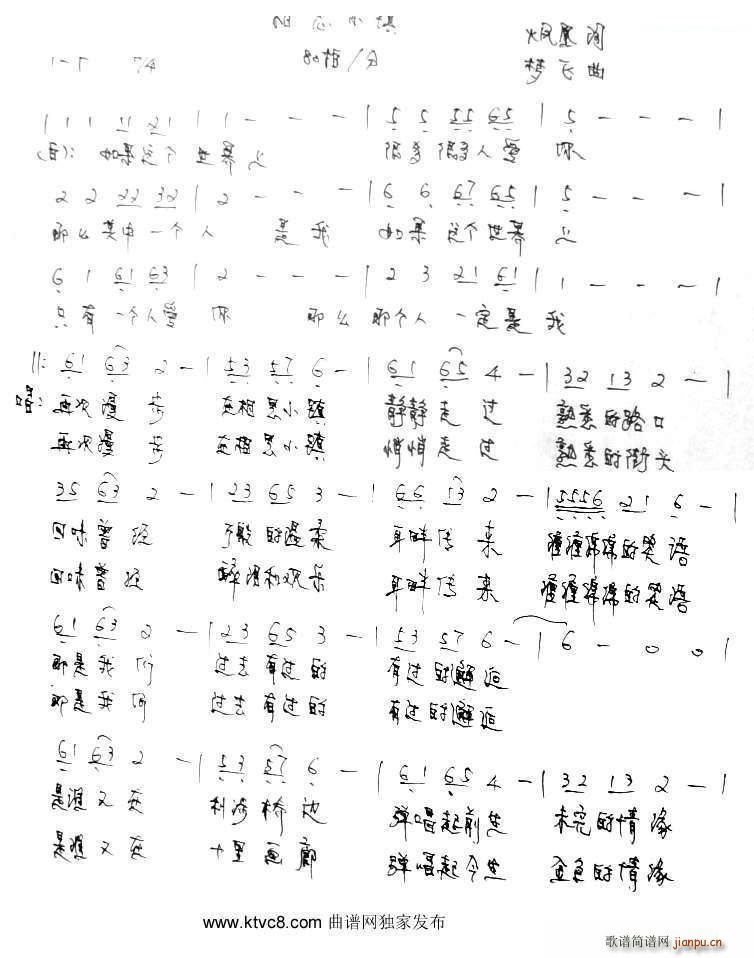 80拍/分
词
梦飞曲
1 1 11 21 | 1 - - - | 5 5 55 65 | 5 - - - |
(白): 如果这个世界上 很多很多人爱你
2 2 22 32 | 2 - - - | 6 6 67 65 | 5 - - - |
那么其中一个人 是我 如果这个世界上
6 1 61 63 | 2 - - - | 2 3 21 61 | 1 - - - |
只有一个人爱你 那么那个人一定是我
||: 61 63 2 - | 53 57 6 - | 61 65 4 - | 32 13 2 - |
唱: 再次漫步 在相思小镇 静静走过 熟悉的路口
再次漫步 在相思小镇 悄悄走过 熟悉的街头
35 63 2 - | 23 65 3 - | 66 13 2 - | 5556 21 6 - |
回味曾经 的温柔 耳畔传来 的笑语
回味曾经 和欢乐 耳畔传来 的笑语
61 63 2 - | 23 65 3 - | 53 57 6 - | 6 - 0 0 |
那是我们 过去有过的 有过的邂逅
那是我们 过去有过的 有过的邂逅
61 63 2 - | 53 57 6 - | 61 65 4 - | 32 13 2 - |
是谁又在 桥边 弹唱起前生 未完的情缘
是谁又在 十里画廊 弹唱起今生 的情缘
www.ktvc8.com 曲谱网独家发布
歌谱简谱网 jianpu.cn